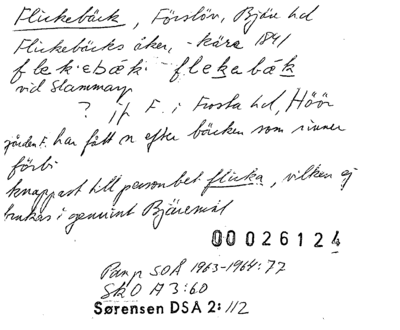 Flickebäck, Förslöv, Bjäre hd
Flickebäcks åker, -kära 1841
flekebäk. flekabäk
vid Slammarp
? jfr F. i Frosta hd, Höör
gården F. har fått n efter bäcken som rinner
förbi
knappast till personbet. flicka, vilken ej
brukas i genuint Bjäremål
00026124
Pamp SOÅ 1963-1964:77
SkO A 3:60
Sørensen DSA 2:112